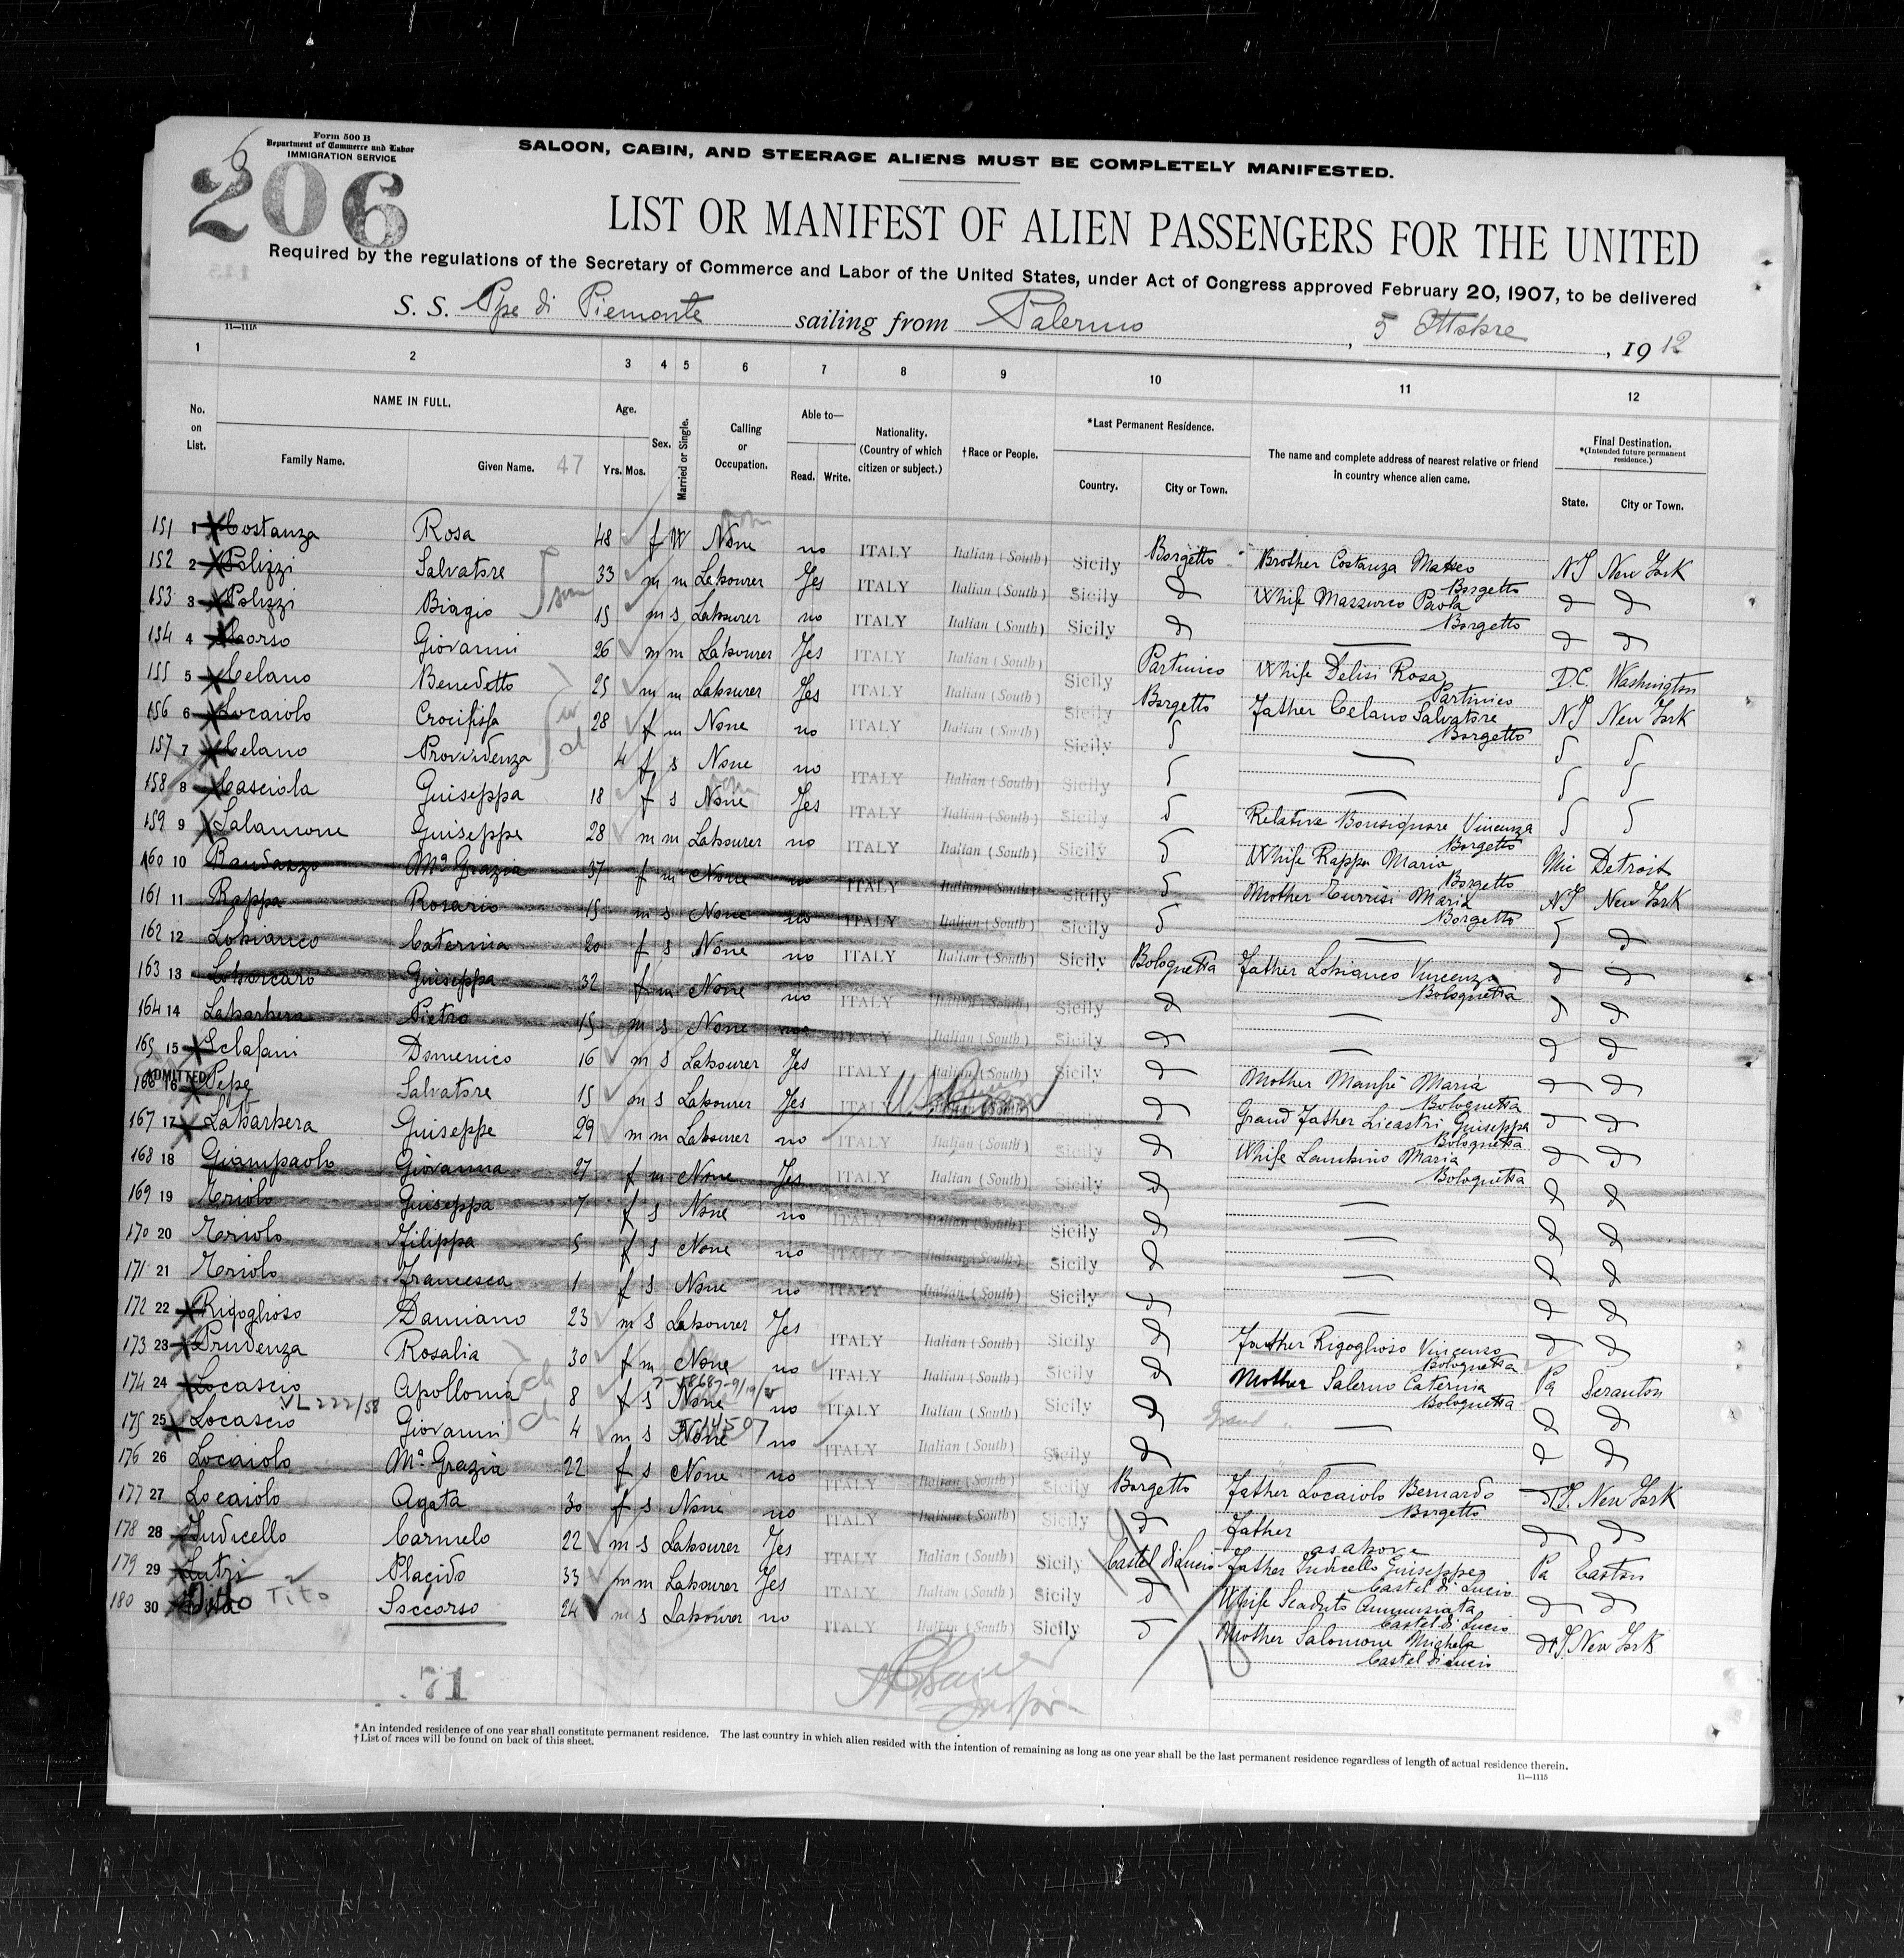 Form 500 B
Department of Commerce and Labor
IMMIGRATION SERVICE
206
SALOON, CABIN, AND STEERAGE ALIENS MUST BE COMPLETELY MANIFESTED.
LIST OR MANIFEST OF ALIEN PASSENGERS FOR THE UNITED
Required by the regulations of the Secretary of Commerce and Labor of the United States, under Act of Congress approved February 20, 1907, to be delivered
S. S. Ppe di Piemonte sailing from Palermo, 5 Ottobre, 1912
11—1115
1 2 3 4 5 6 7 8 9 10 11 12
No. on List. NAME IN FULL. Family Name. Given Name. 47 Age. Yrs. Mos. Sex. Married or Single. Calling or Occupation. Able to— Read. Write. Nationality. (Country of which citizen or subject.) †Race or People. *Last Permanent Residence. Country. City or Town. The name and complete address of nearest relative or friend in country whence alien came. Final Destination. *(Intended future permanent residence.) State. City or Town.
151 1 Costanza Rosa 48 f W None no ITALY Italian (South) Sicily Borgetto Brother Costanza Matteo Borgetto NY New York
152 2 Polizzi Salvatore 33 m m Labourer Yes ITALY Italian (South) Sicily d Whife Mazzurco Paola Borgetto d d
153 3 Polizzi Biagio 15 m s Labourer no ITALY Italian (South) Sicily d — d d
154 4 Corso Giovanni 26 m m Labourer Yes ITALY Italian (South) Sicily Partinico Whife Delisi Rosa Partinico D.C. Washington
155 5 Celano Benedetto 25 m m Labourer Yes ITALY Italian (South) Sicily Borgetto Father Celano Salvatore Borgetto NY New York
156 6 Locaiolo Crocifissa 28 f m None no ITALY Italian (South) Sicily d — d d
157 7 Celano Providenza 4 f s None no ITALY Italian (South) Sicily d — d d
158 8 Casciola Guiseppa 18 f s None Yes ITALY Italian (South) Sicily d Relative Bonsignore Vincenza Borgetto d d
159 9 Salamone Guiseppe 28 m m Labourer no ITALY Italian (South) Sicily d Whife Rappa Maria Borgetto Mic Detroit
160 10 Randazzo Ma Grazia 37 f m None no ITALY Italian (South) Sicily d Mother Currisi Maria Borgetto NY New York
161 11 Rappa Rosario 15 m s None no ITALY Italian (South) Sicily d — d d
162 12 Lobianco Caterina 20 f s None no ITALY Italian (South) Sicily Bolognetta Father Lobianco Vincenzo Bolognetta d d
163 13 Guiseppa 32 f m None no ITALY Italian (South) Sicily d — d d
164 14 Labarbera Pietro 15 m s None ITALY Italian (South) Sicily d — d d
165 15 Sclafani Domenico 16 m s Labourer Yes ITALY Italian (South) Sicily d Mother Manfré Maria Bolognetta d d
ADMITTED
166 16 Pepe Salvatore 15 m s Labourer Yes ITALY Sicily d Grand Father Licastri Guiseppe Bolognetta d d
167 17 Labarbera Guiseppe 29 m m Labourer no ITALY Italian (South) Sicily d Whife Lambino Maria Bolognetta d d
168 18 Giampaolo Giovanna 27 f m None Yes ITALY Italian (South) Sicily d — d d
169 19 Criolo Guiseppa 7 f s None no ITALY Italian (South) Sicily d — d d
170 20 Criolo Filippa 5 f s None no ITALY Italian (South) Sicily d — d d
171 21 Criolo Francesca 1 f s None no ITALY Italian (South) Sicily d — d d
172 22 Rigoglioso Damiano 23 m s Labourer Yes ITALY Italian (South) Sicily d Father Rigoglioso Vincenzo Bolognetta d d
173 23 Prudenza Rosalia 30 f m None no ITALY Italian (South) Sicily d Mother Salerno Caterina Bolognetta Pa Scranton
174 24 Locascio Apollonia 8 f s None no ITALY Italian (South) Sicily d Grand " — d d
VL 222/58
175 25 Locascio Giovanni 4 m s None no ITALY Italian (South) Sicily d — d d
176 26 Locaiolo Ma Grazia 22 f s None no ITALY Italian (South) Sicily Borgetto Father Locaiolo Bernardo Borgetto NY. New York
177 27 Locaiolo Agata 30 f s None no ITALY Italian (South) Sicily d Father as above d d
178 28 Iudicello Carmelo 22 m s Labourer Yes ITALY Italian (South) Sicily Castel di Lucio Father Iudicello Guiseppe Castel di Lucio Pa Easton
179 29 Cutri Placido 33 m m Labourer Yes ITALY Italian (South) Sicily d Whife Scaduto Annunziata Castel di Lucio d d
180 30 Tito Soccorso 24 m s Labourer no ITALY Italian (South) Sicily d Mother Salomone Michela Castel di Lucio NY. New York
71
*An intended residence of one year shall constitute permanent residence. The last country in which alien resided with the intention of remaining as long as one year shall be the last permanent residence regardless of length of actual residence therein.
†List of races will be found on back of this sheet.
11—1115